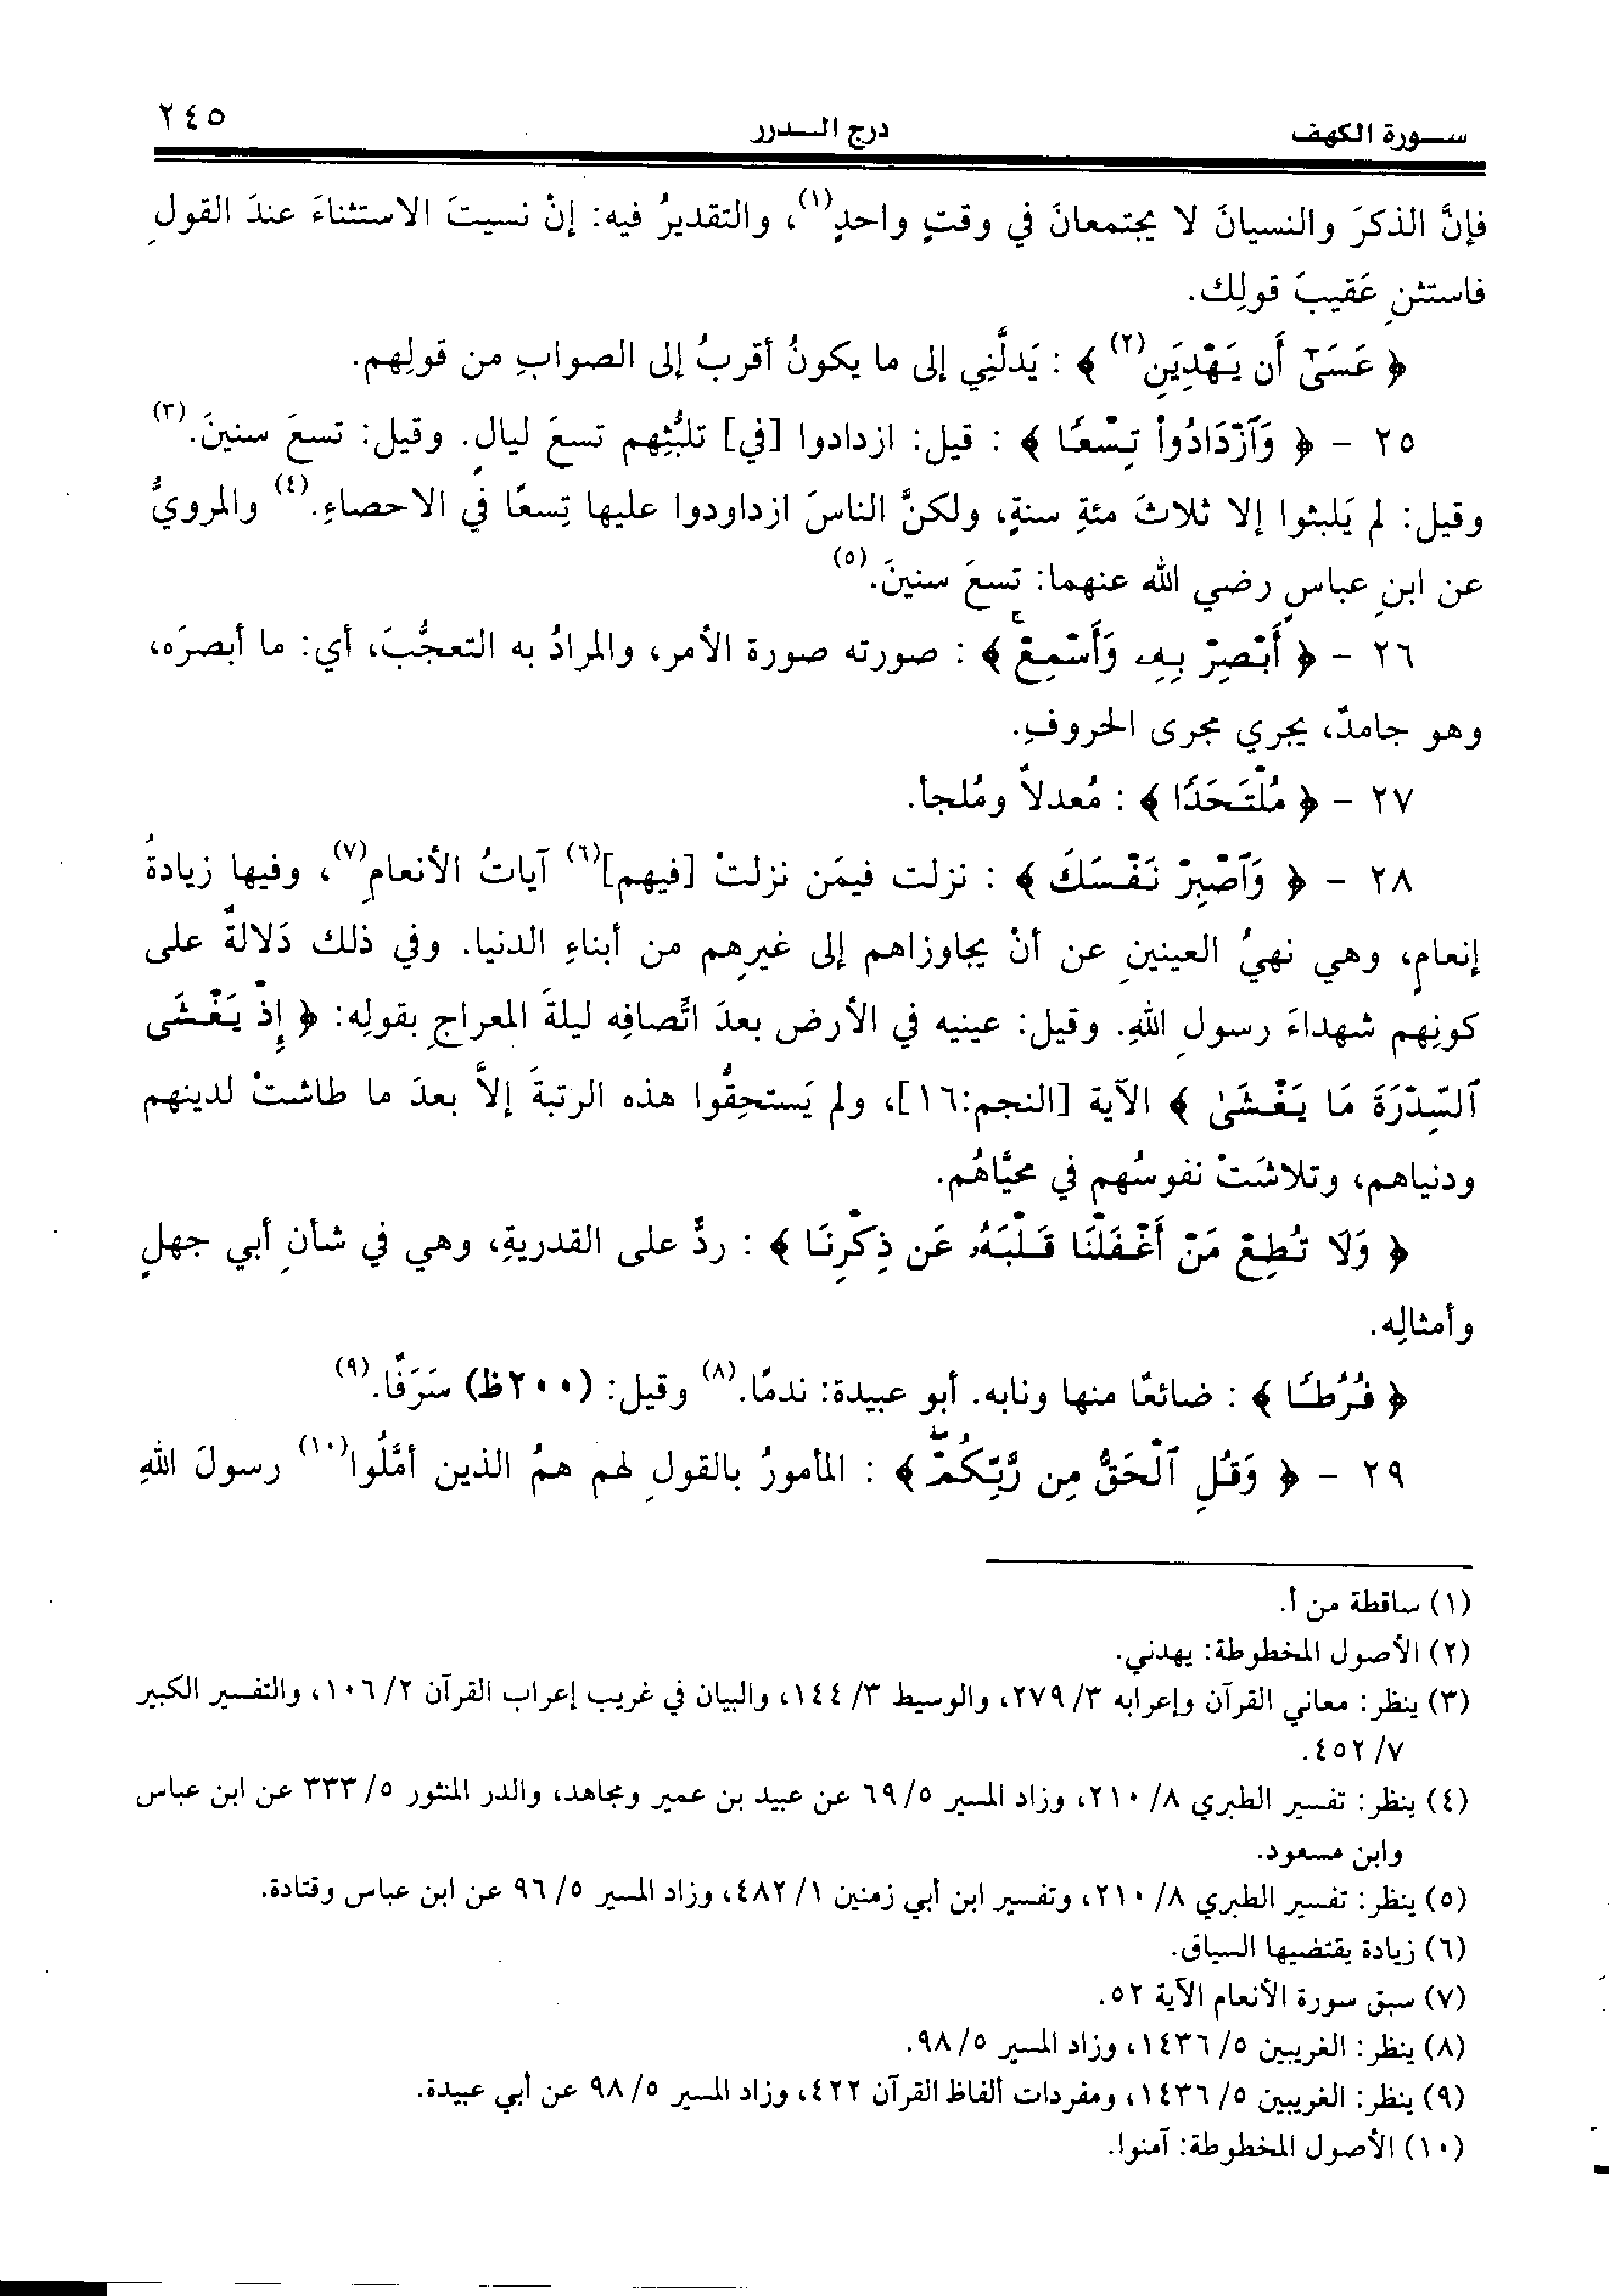 سـورة الكهف درج الـدرر ٢٤٥
فإنَّ الذكرَ والنسيانَ لا يجتمعانَ في وقتٍ واحدٍ(١)، والتقديرُ فيه: إنْ نسيتَ الاستثناءَ عندَ القولِ
فاستثنِ عَقيبَ قولِك.
﴿ عَسَىٰٓ أَن يَهْدِيَنِ(٢) ﴾ : يَدلَّنِي إلى ما يكونُ أقربُ إلى الصوابِ من قولِهم.
٢٥ – ﴿ وَٱزْدَادُوا۟ تِسْعًا ﴾ : قيل: ازدادوا [في] تلبُّثِهم تسعَ ليالٍ. وقيل: تسعَ سنينَ.(٣)
وقيل: لم يَلبثوا إلا ثلاثَ مئةِ سنةٍ، ولكنَّ الناسَ ازداودوا عليها تِسعًا في الاحصاءِ.(٤) والمرويُّ
عن ابنِ عباسٍ رضي الله عنهما: تسعَ سنينَ.(٥)
٢٦ – ﴿ أَبْصِرْ بِهِۦ وَأَسْمِعْ ۚ ﴾ : صورته صورة الأمر، والمرادُ به التعجُّبَ، أي: ما أبصرَه،
وهو جامدٌ، يجري مجرى الحروفِ.
٢٧ – ﴿ مُلْتَحَدًا ﴾ : مُعدلاً ومُلجأ.
٢٨ – ﴿ وَٱصْبِرْ نَفْسَكَ ﴾ : نزلت فيمَن نزلتْ [فيهم](٦) آياتُ الأنعامِ(٧)، وفيها زيادةُ
إنعامٍ، وهي نهيُ العينينِ عن أنْ يجاوزاهم إلى غيرِهم من أبناءِ الدنيا. وفي ذلك دَلالةٌ على
كونِهم شهداءَ رسولِ اللهِ. وقيل: عينيه في الأرض بعدَ اتَّصافِه ليلةَ المعراجِ بقولِه: ﴿ إِذْ يَغْشَى
ٱلسِّدْرَةَ مَا يَغْشَىٰ ﴾ الآية [النجم:١٦]، ولم يَستحِقُّوا هذه الرتبةَ إلاَّ بعدَ ما طاشتْ لدينهم
ودنياهم، وتلاشَتْ نفوسُهم في محيَّاهُم.
﴿ وَلَا تُطِعْ مَنْ أَغْفَلْنَا قَلْبَهُۥ عَن ذِكْرِنَا ﴾ : ردٌّ على القدريةِ، وهي في شأنِ أبي جهلٍ
وأمثالِه.
﴿ فُرُطًا ﴾ : ضائعًا منها ونابه. أبو عبيدة: ندمًا.(٨) وقيل: (٢٠٠ظ) سَرَفًا.(٩)
٢٩ – ﴿ وَقُلِ ٱلْحَقُّ مِن رَّبِّكُمْ ۖ ﴾ : المأمورُ بالقولِ لهم همُ الذين أمَّلُوا(١٠) رسولَ اللهِ
(١) ساقطة من أ.
(٢) الأصول المخطوطة: يهدني.
(٣) ينظر: معاني القرآن وإعرابه ٣/ ٢٧٩، والوسيط ٣/ ١٤٤، والبيان في غريب إعراب القرآن ٢/ ١٠٦، والتفسير الكبير
٧/ ٤٥٢.
(٤) ينظر: تفسير الطبري ٨/ ٢١٠، وزاد المسير ٥/ ٦٩ عن عبيد بن عمير ومجاهد، والدر المنثور ٥/ ٣٣٣ عن ابن عباس
وابن مسعود.
(٥) ينظر: تفسير الطبري ٨/ ٢١٠، وتفسير ابن أبي زمنين ١/ ٤٨٢، وزاد المسير ٥/ ٩٦ عن ابن عباس وقتادة.
(٦) زيادة يقتضيها السياق.
(٧) سبق سورة الأنعام الآية ٥٢.
(٨) ينظر: الغريبين ٥/ ١٤٣٦، وزاد المسير ٥/ ٩٨.
(٩) ينظر: الغريبين ٥/ ١٤٣٦، ومفردات ألفاظ القرآن ٤٢٢، وزاد المسير ٥/ ٩٨ عن أبي عبيدة.
(١٠) الأصول المخطوطة: آمنوا.